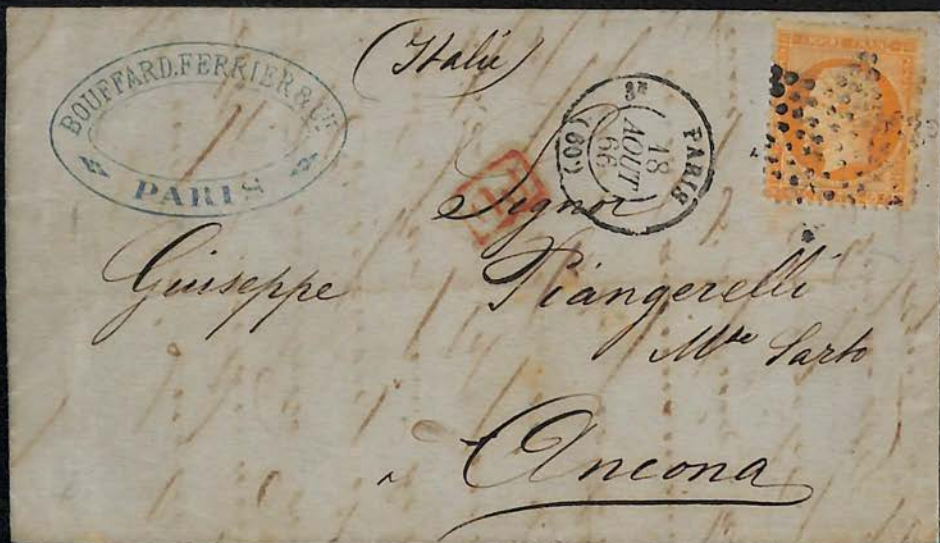 BOUFFARD.FERRIER & Cie
PARIS
(Italie)
PARIS
3E
18
AOUT
66
(60)
Signor
Giuseppe Piangerelli
Mte Sarto
Ancona